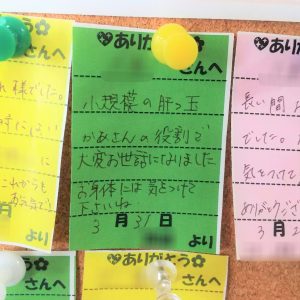 ありがとう
さんへ
小規模の肝っ玉
かあさんの役割で
大変お世話になりました
お身体には気をつけて
下さいね
3月31日
より
ありがとう
さんへ
様でした。
に
これからも
お元気で
月
より
ありが
長い間お
でした。
気をつけて
ありがとうござ
3月2
ありがとう
さんへ
さんへ